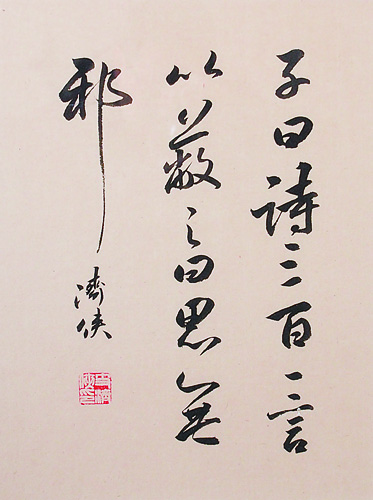 子曰詩三百一言
以蔽之曰思無
邪
濟俠